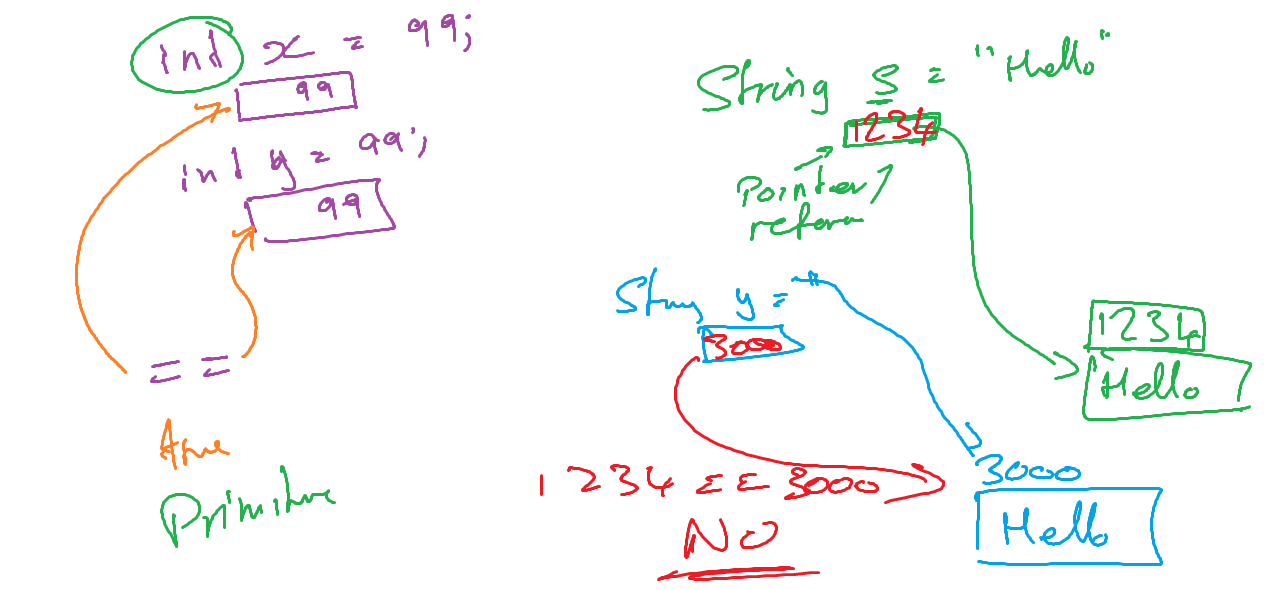 int x = 99;
99
int y = 99;
99
==
Primitive
String s = "Hello"
1234
Pointer /
refern
String y = "
3000
1234
"Hello
3000
Hello
1234 == 3000
NO